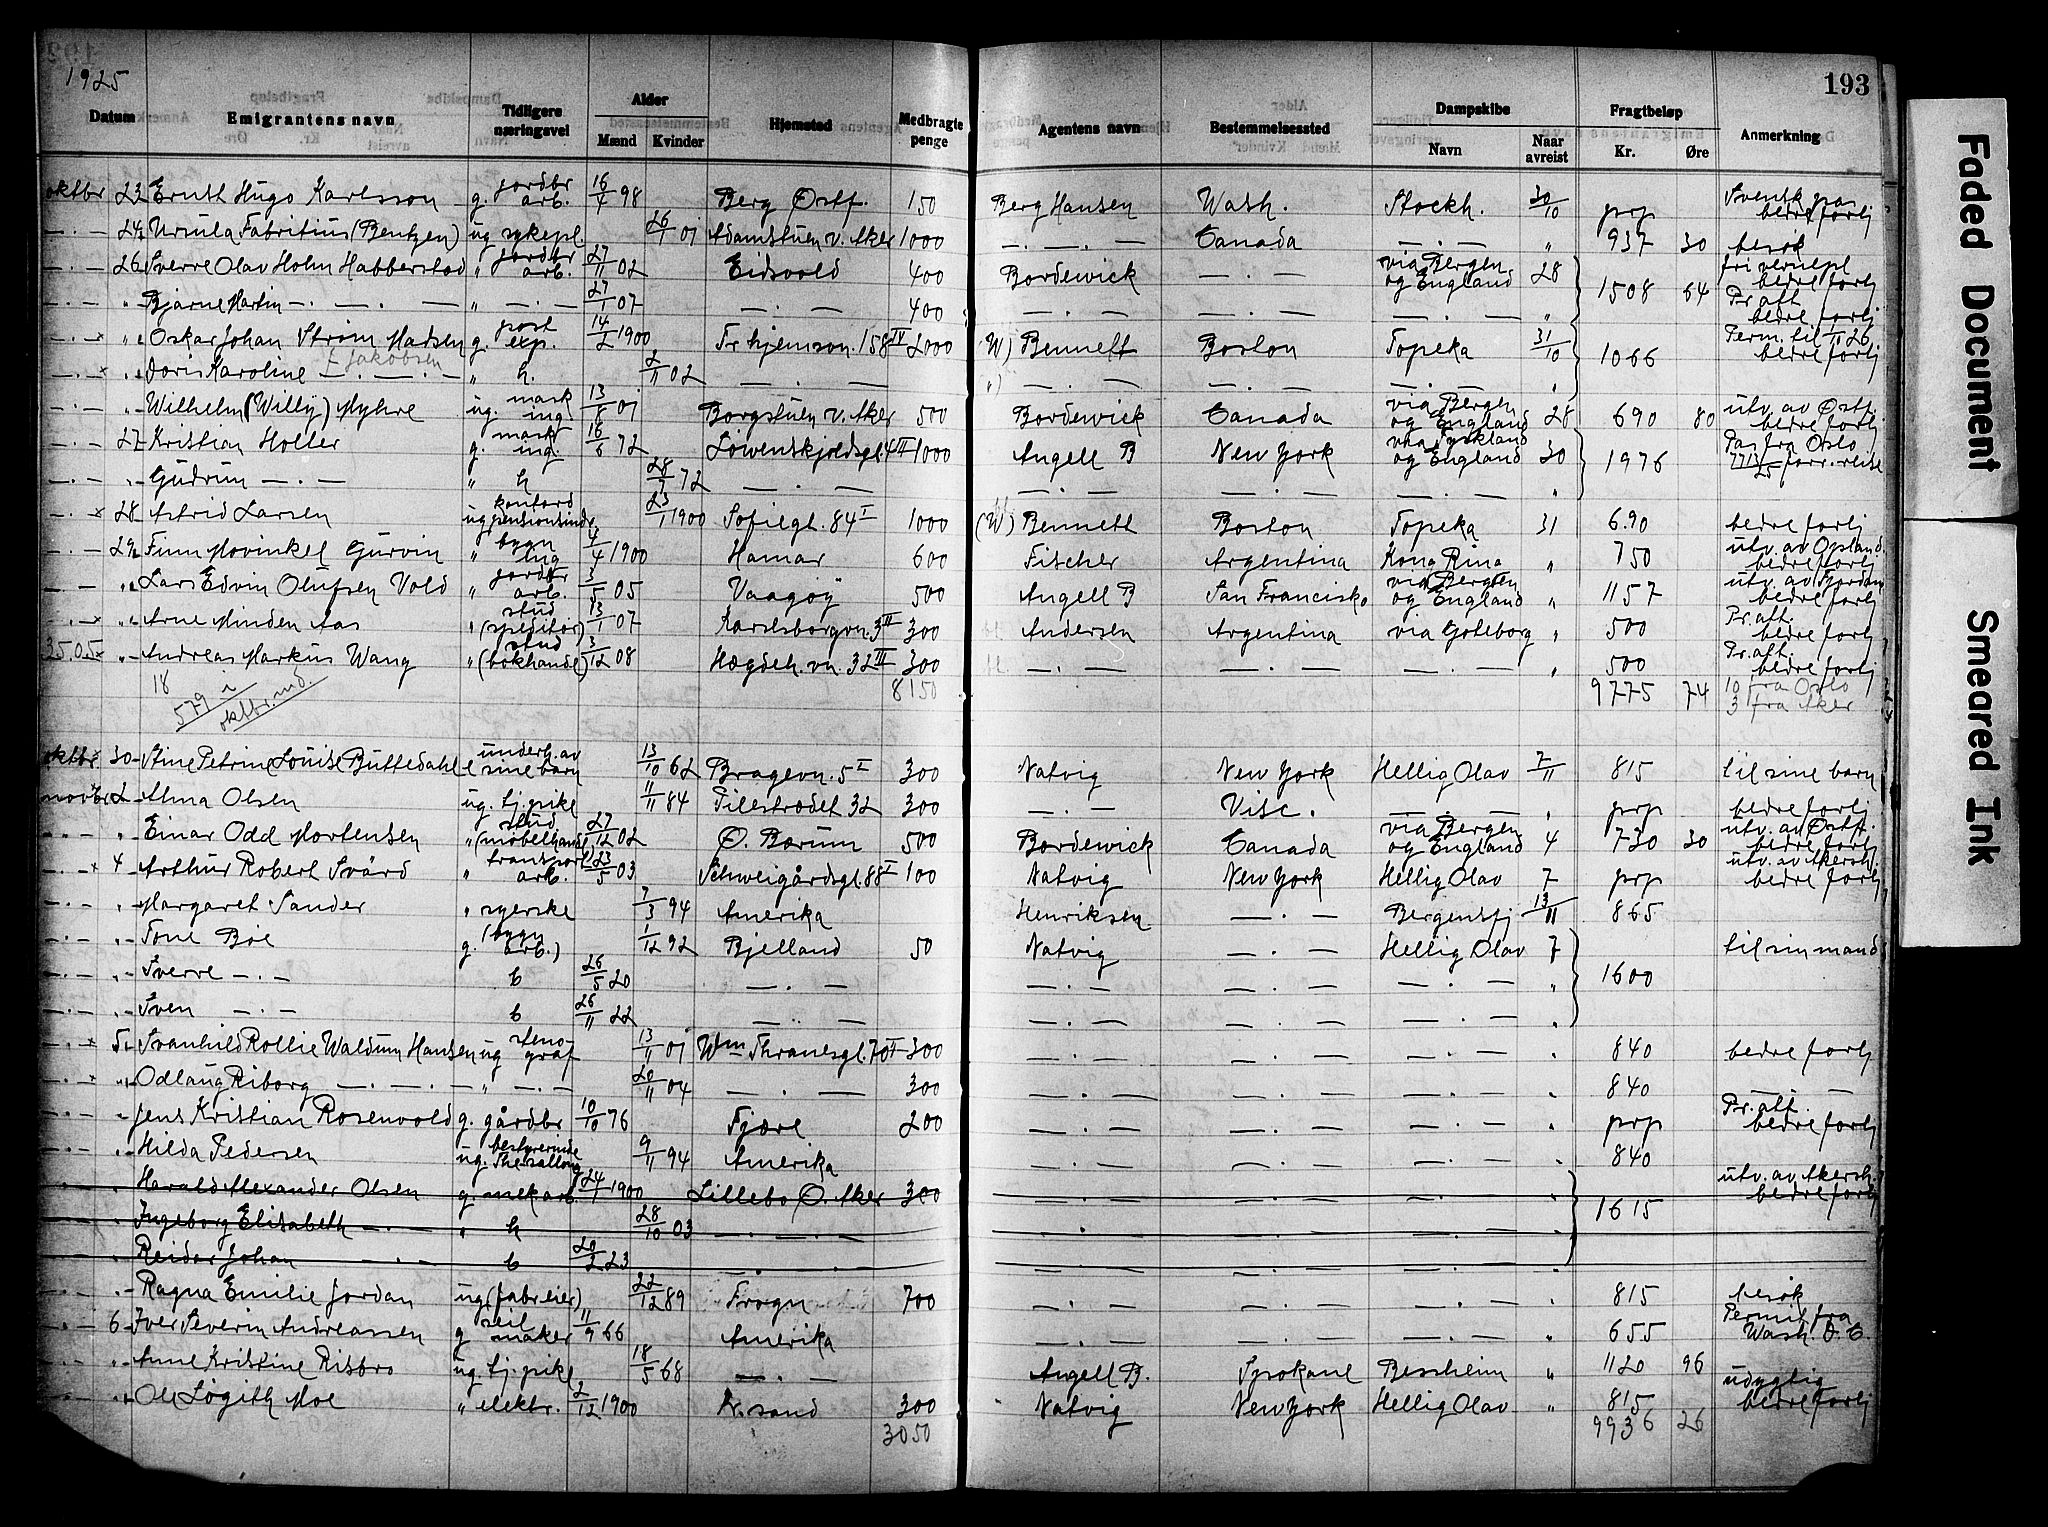 1925
193
Datum Emigrantens navn Tidligere næringsvei Alder Mænd Kvinder Hjemsted Medbragte penge Agentens navn Bestemmelsessted Dampskibe Navn Naar avreist Fragtbeløp Kr. Øre Anmerkning
oktbr 23 Ernst Hugo Karlsson g. jordbr arb. 16/4 98 Berg Østf. 150 Berg Hansen Wash. Stockh. 30/10 prp Svensk pas bedre forhj
— . — 24 Ursula Fabritius (Bentzen) ug sykepl 26/1 01 Adamstuen v. Aker 1000 — . — . — Canada — . — " 937 30 besøk
— . — 26 Sverre Olav Holm Habberstad " jordbr arb. 27/11 02 Eidsvold 400 Bordewick — . — via Bergen og England 28 1508 64 fri vernepl bedre forhj
— . — " Bjarne Martin — . — . — " — . — 27/1 07 — . — 400 — . — . — — . — — . — . — " Pr. att. bedre forhj
— . — × " Oskar Johan Strøm Madsen g. post exp. 14/2 1900 Fr. hjemson. 158 IV 2000 (W) Bennett Boston Topeka 31/10 1066 Perm. til 1/11 26 bedre forhj
— . — × " Doris Karoline — . — . — f Jakobsen " h. 2/11 02 — . — — . — . — — . — — . — "
— . — " Wilhelm (Willy) Myhre ug. mask ing 13/8 01 Borgstuen v. Aker 500 Bordewick Canada via Bergen og England 28 690 80 utv. av Østf. bedre forhj
— . — 27 Kristian Holler g. mask ing. 16/6 72 Løwenskjoldsgt. 4 II 1000 Angell B New York via Tyskland og England 30 1976 Pas fra Oslo 7713/25 forr. reise
— . — " Gudrun — . — " h 28/7 72 — . — — . — . — — . — . — — . — "
— . — × 28 Astrid Larsen ug kontord pensionsinde 23/1 1900 Sofiegt. 84 I 1000 (W) Bennett Boston Topeka 31 690 bedre forhj
— . — 29 Finn Hovinkel Gurvin " bygn ing 4/4 1900 Hamar 600 Fischer Argentina Kong Ring " 750 utv. av Opland. bedre forhj
— " Lars Edvin Olufsen Vold " jordbr arb. 3/5 05 Vaagøy 500 Angell B San Francisko via Bergen og England " 1157 utv. av Fjordane bedre forhj
. — × " Arne Minden Aas " stud (speditør) 13/1 07 Karlsborgvn. 3 II 300 Andersen Argentina via Gøteborg " 500 Pr. att. bedre forhj
35.05 × " Andreas Markus Wang " stud (bokhandel) 3/12 08 Hægdeh. vn. 32 III 300 — . — — . — — . — . — " 500 Pr. att. bedre forhj
18 8150 9775 74 10 fra Oslo
579 i oktbr. md. 3 fra Aker
oktbr × 30 Stine Petrine Louise Buttedahl e underh. av sine barn 13/10 62 Bragevn. 5 I 300 Natvig New York Hellig Olav 7/11 815 til sine barn
novbr × 2 Alma Olsen ug. tj. pike 11/11 84 Pilestrædet 32 300 — . — Visc. — . — . — . prp bedre forhj
— . — " Einar Odd Mortensen " stud (møbelhandl 27/12 02 Ø. Bærum 500 Bordewick Canada via Bergen og England 4 730 30 utv. av Østf. bedre forhj
— . — × 4 Arthur Robert Svärd " transport arb. 23/5 03 Schweigårdsgt. 88 I 100 Natvig New York Hellig Olav 7 prp utv. av Akersh. bedre forhj
— . — " Margaret Sander " syerske 7/3 94 Amerika Henriksen — . — Bergensfj 13/11 865
— . — " Tone Bøe g. (bygn arb.) 1/12 92 Bjelland 50 Natvig — . — Hellig Olav 7 1600 til sin mand
— . — " Sverre — . — b 26/5 20 — . — — . — — . — — . — "
— . — " Sven — . — b 26/11 22 — . — — . — — . — — . — "
— . — × 5 Svanhild Rollie Waldum Hansen ug steno graf 13/11 01 Wm Thranesgt. 70 II 300 — . — — . — — . — . 840 bedre forhj
— . — × " Odlaug Riborg — . — . — " — . — 20/11 04 — . — 300 — . — — . — — . — . 840 — . —
— . — " Jens Kristian Rosenvold g. gårdbr 10/10 76 Fjære 200 — . — — . — — . — . prp Pr. att. bedre forhj
— . — " Hilda Pedersen ug. bestyrerinde The sallong 9/11 94 Amerika — . — — . — — . — . 840
— . — " Harald Alexander Olsen g. mek arb. 24/1 1900 Lillebo Ø. Aker 300 — . — — . — — . — . 1615 utv. av Akersh. bedre forhj
— . — " Ingeborg Elisabeth — . — " h 28/10 03 — . — . —
— . — " Reidar Johan — . — b 20/2 23 — . — — . — — . — — . — "
— . — " Ragna Emilie Jordan ug (fabr eier) 22/12 89 Frogn 700 — . — — . — — . — . 815 besøk
— . — 6 Iver Severin Andreassen g seil maker 11/9 66 Amerika — . — — . — — . — " 655 Permit fra Wash D. C.
— . — " Anne Kristine Risbro ug. tj. pike 18/5 68 — . — Angell B. Spokane Bessheim " 1120 96
— . — " Ole Løgith Moe " elektr. 2/12 1900 Kr. sand 300 Natvig New York Hellig Olav " 815 udygtig bedre forhj
3050 9936 26
Faded Document
Smeared Ink